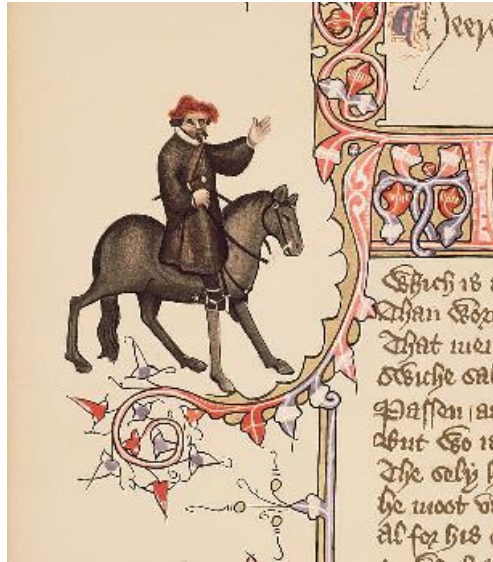 Which is
Than wor
That men
Swiche sal
Passen as
But wo is
The sely h
he moot
Al for his